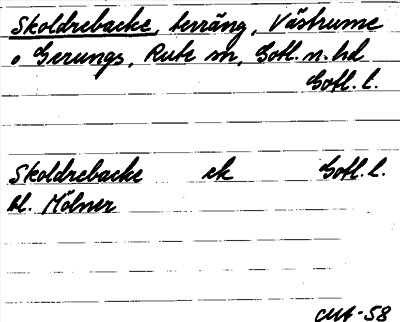 Skoldrebacke, terräng, Västrume
o Gerungs, Rute sn, Gotl. n. hd
Gotl. l.
Skoldrebacke ek Gotl. l.
bl. Mölner
CMA-58